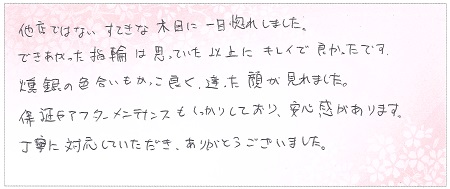 他店ではない すてきな 木目に 一目惚れしました。
できあがった指輪は思っていた以上に キレイで良かったです。
燻銀の色合いもかっこ良く、違った顔が見れました。
保証やアフターメンテナンスもしっかりしており、安心感があります。
丁寧に対応していただき、ありがとうございました。